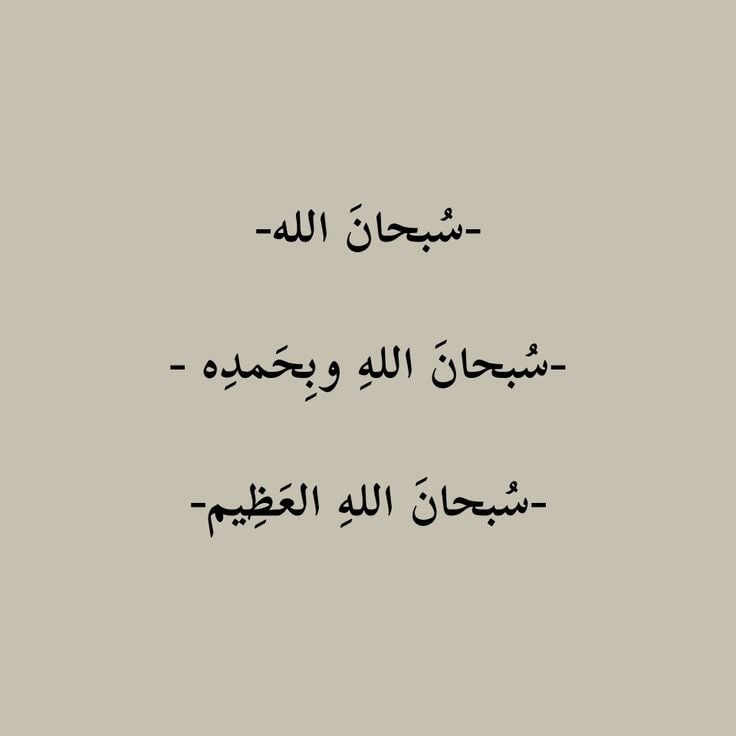 -سُبحانَ الله-
-سُبحانَ اللهِ وبِحَمدِه -
-سُبحانَ اللهِ العَظِيم-